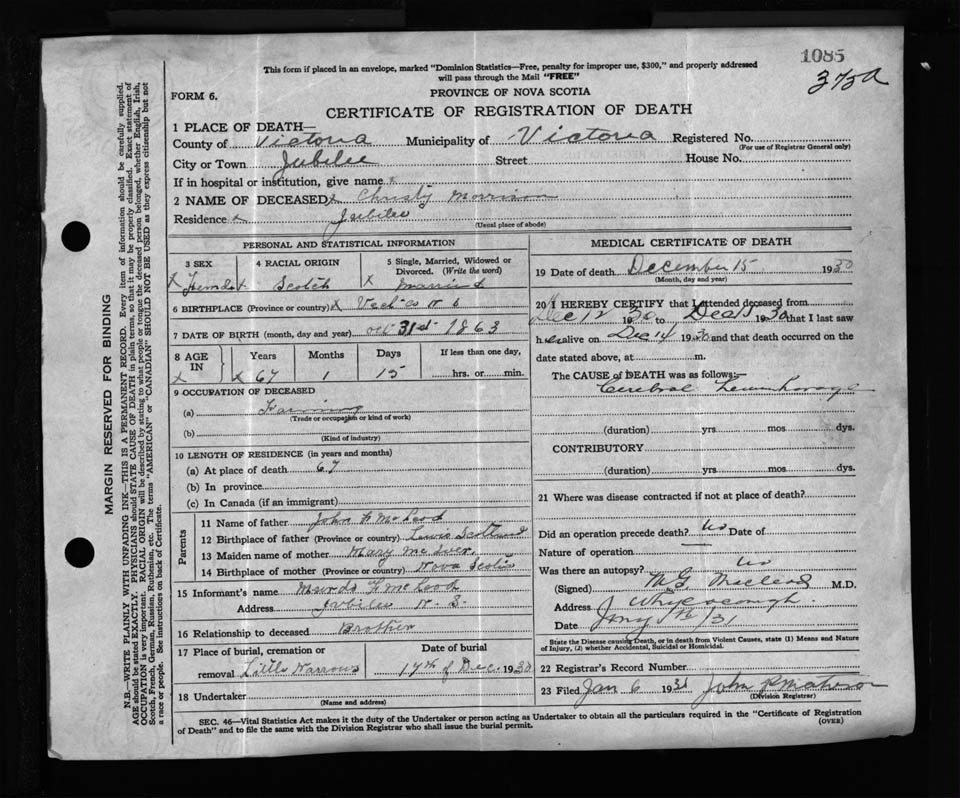 1085
373a
This form if placed in an envelope, marked "Dominion Statistics—Free, penalty for improper use, $300," and properly addressed
will pass through the Mail "FREE"
FORM 6.
PROVINCE OF NOVA SCOTIA
CERTIFICATE OF REGISTRATION OF DEATH
1 PLACE OF DEATH—
County of Victoria Municipality of Victoria Registered No.
(For use of Registrar General only)
City or Town Jubilee Street House No.
If in hospital or institution, give name x
2 NAME OF DECEASED x Christy Morrison
Residence x Jubilee
(Usual place of abode)
PERSONAL AND STATISTICAL INFORMATION
3 SEX 4 RACIAL ORIGIN 5 Single, Married, Widowed or Divorced. (Write the word)
x Female x Scotch x Married
6 BIRTHPLACE (Province or country) x
7 DATE OF BIRTH (month, day and year) Oct 31st 1863
8 AGE IN Years Months Days If less than one day,
x x 67 1 15 hrs. or min.
9 OCCUPATION OF DECEASED
(a) Farming
(Trade or occupation or kind of work)
(b)
(Kind of industry)
10 LENGTH OF RESIDENCE (in years and months)
(a) At place of death 67
(b) In province
(c) In Canada (if an immigrant)
Parents
11 Name of father John McLeod
12 Birthplace of father (Province or country) Lewis Scotland
13 Maiden name of mother Mary McIver
14 Birthplace of mother (Province or country) Nova Scotia
15 Informant's name Murdo McLeod
Address Jubilee N. S.
16 Relationship to deceased Brother
17 Place of burial, cremation or Date of burial
removal Little Narrows 17th of Dec. 1930
18 Undertaker
(Name and address)
MEDICAL CERTIFICATE OF DEATH
19 Date of death December 15 1930
(Month, day and year)
20 I HEREBY CERTIFY that I attended deceased from
Dec 12 1930 to Dec 1930 that I last saw
her alive on Dec 14 1930 and that death occurred on the
date stated above, at m.
The CAUSE of DEATH was as follows:—
Cerebral Hemmhorage
(duration) yrs mos dys.
CONTRIBUTORY
(duration) yrs mos dys.
21 Where was disease contracted if not at place of death?
Did an operation precede death? No Date of
Nature of operation
Was there an autopsy? No
(Signed) MacLeod M.D.
Address Whycocomagh
Date Jany /31
State the Disease causing Death, or in death from Violent Causes, state (1) Means and Nature
of Injury, (2) whether Accidental, Suicidal or Homicidal.
22 Registrar's Record Number
23 Filed Jan 6 1931 John
(Division Registrar)
SEC. 46—Vital Statistics Act makes it the duty of the Undertaker or person acting as Undertaker to obtain all the particulars required in the "Certificate of Registration
of Death" and to file the same with the Division Registrar who shall issue the burial permit.
(OVER)
MARGIN RESERVED FOR BINDING
N.B.—WRITE PLAINLY WITH UNFADING INK—THIS IS A PERMANENT RECORD. Every item of information should be carefully supplied.
AGE should be stated EXACTLY. PHYSICIANS should STATE CAUSE OF DEATH in plain terms, so that it may be properly classified. Exact statement of
OCCUPATION is very important. RACIAL ORIGIN will be described by stating to what people or tongue the deceased person belonged, whether English, Irish,
Scotch, French, German, Russian, Ruthenian, etc. The terms "AMERICAN" or "CANADIAN" SHOULD NOT BE USED as they express citizenship but not
a race or people. See instructions on back of Certificate.